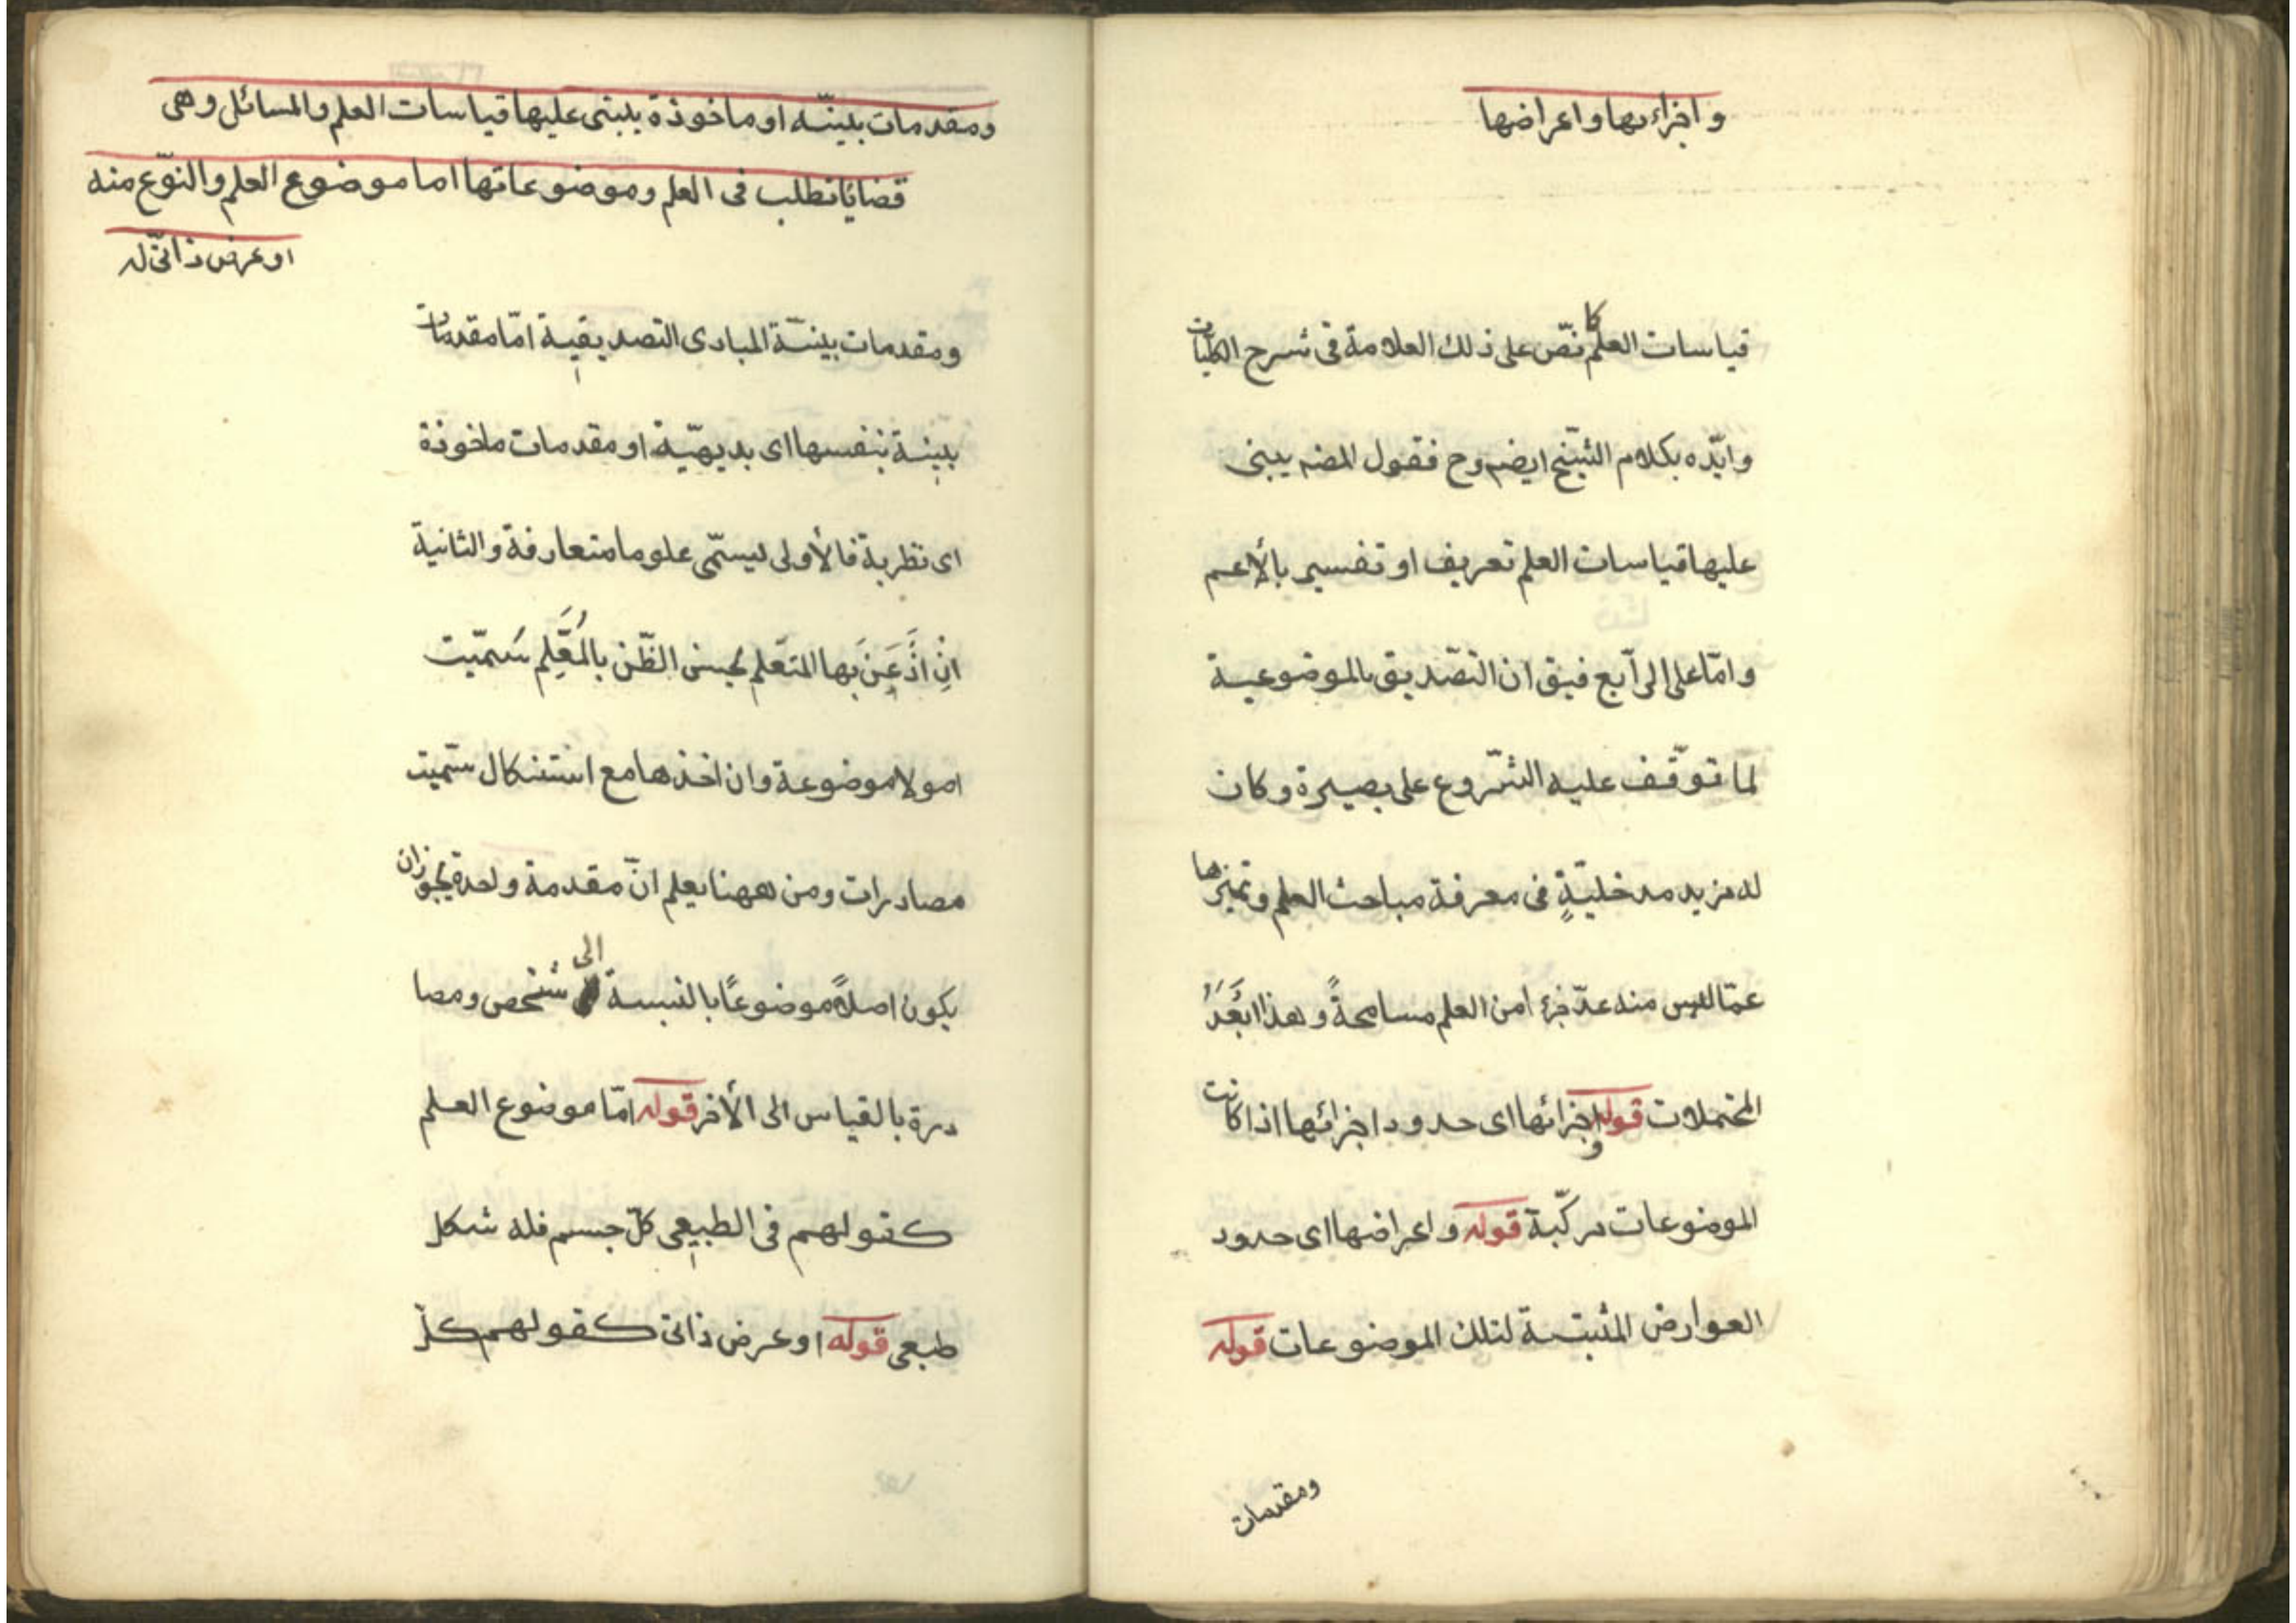 واجزاءها واعراضها
قياسات العلم كا نصّ على ذلك العلامة فى شرح الكليّات
وايّده بكلام الشّيخ ايضم وح فقول المضه يبنى
عليها قياسات العلم تعريف او تفسير بالأعم
وامّا على الرابع فيق ان التّصديق بالموضوعية
لما توقّف عليه الشّروع على بصيرة وكان
له مزيد مدخليّةٍ فى معرفة مباحث العلم وتميّزها
عمّا ليس منه عدّ جزء امن العلم مسامحةً وهذا ابَعَدُ
المحتملات قوله واجزائها اى حدود اجزائها اذا كانت
الموضوعات مركّبة قوله واعراضها اى حدود
العوارض المثبتة لتلك الموضوعات قوله
ومقدمات
ومقدمات بيّنه او ماخوذة يبتنى عليها قياسات العلم والمسائل وهى
قضايا تطلب فى العلم وموضوعاتها اما موضوع العلم والنوّع منه
او عرض ذاتىّ له
ومقدمات بينّة المبادى التصديقية امّا مقدمات
بينة بنفسها اى بديهيّة او مقدمات ماخوذة
اى نظرية فالأولى ليسمّى علوما متعارفة والثانية
انِ اذَّعَنَ بَها المتعّلم بحسن الظّن بالمُعَّلِم سُمّيت
اصولا موضوعة وان اخذها مع استنكال سمّيت
مصادرات ومن ههنا يعلم انّ مقدمة واحدة يجوز ان
يكون اصلاً موضوعًا بالنبسة الى شخص ومصا
درة بالقياس الى الأخر قوله امّا موضوع العلم
كقولهم فى الطبيعى كلّ جسم فله شكل
طبعى قوله او عرض ذاتى كقولهم كلّ